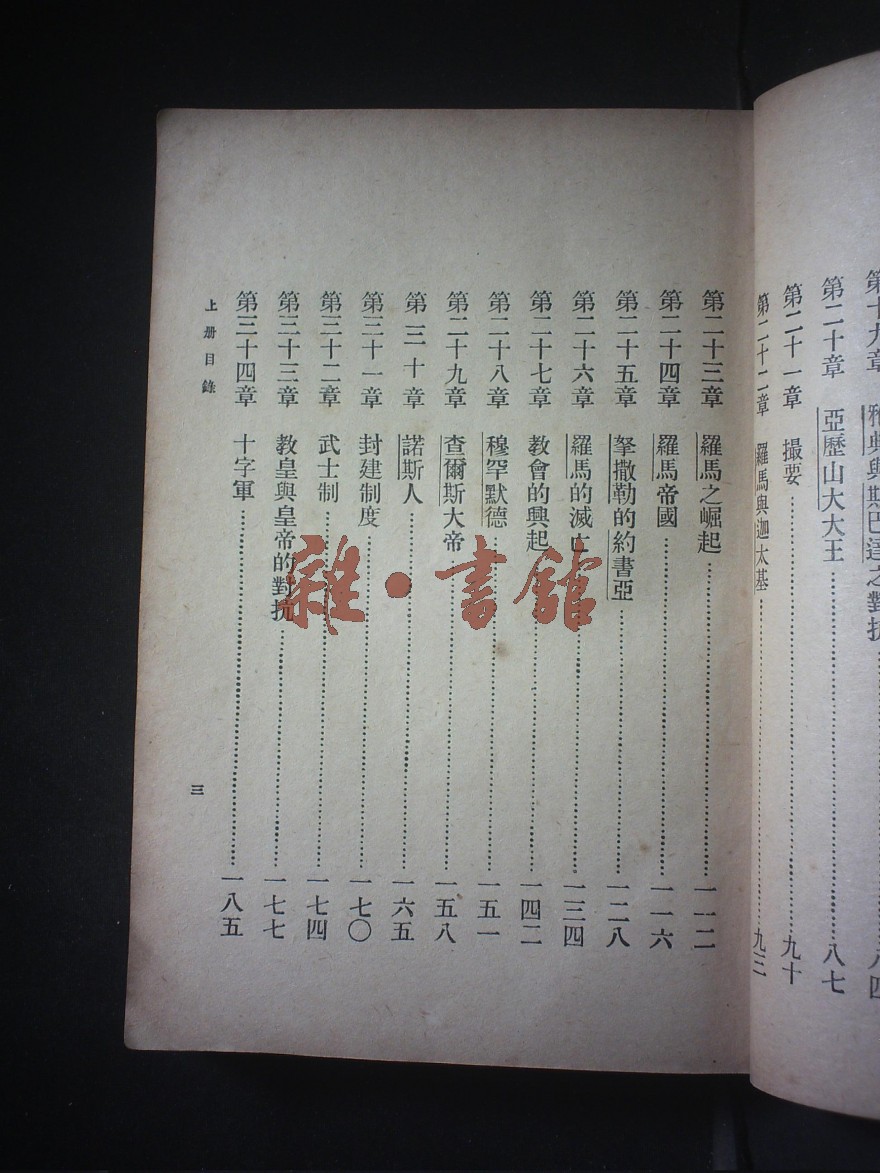 第十九章 雅典與斯巴達之對抗……八四
第二十章 亞歷山大大王……八七
第二十一章 撮要……九十
第二十二章 羅馬與迦太基……九三
第二十三章 羅馬之崛起……一一二
第二十四章 羅馬帝國……一一六
第二十五章 拏撒勒的約書亞……一二八
第二十六章 羅馬的滅亡……一三四
第二十七章 教會的興起……一四二
第二十八章 穆罕默德……一五一
第二十九章 查爾斯大帝……一五八
第三十章 諾斯人……一六五
第三十一章 封建制度……一七〇
第三十二章 武士制……一七四
第三十三章 教皇與皇帝的對抗……一七七
第三十四章 十字軍……一八五
上册目錄
三
雜·書館